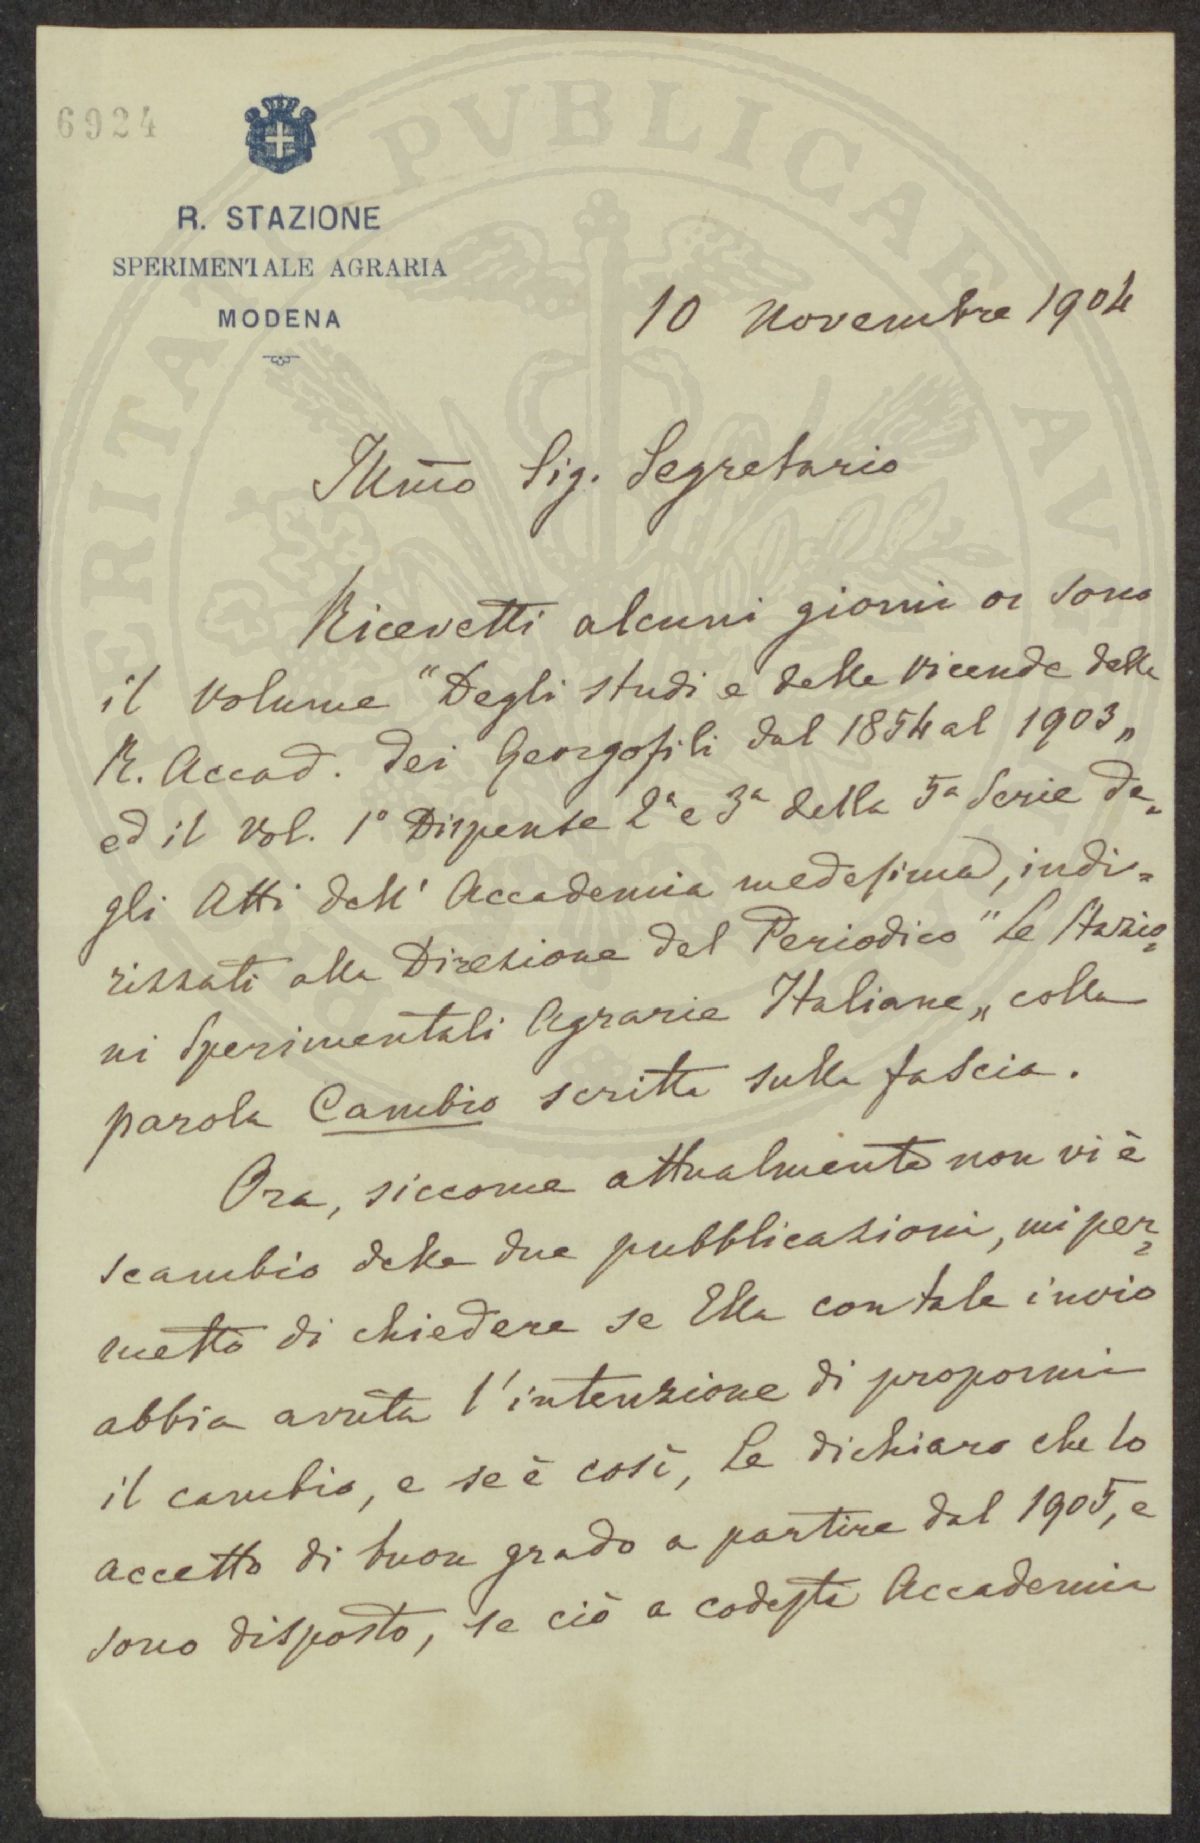 6924
R. STAZIONE
SPERIMENTALE AGRARIA
MODENA
10 Novembre 1904
Illmo Sig. Segretario
Ricevetti alcuni giorni or sono
il volume "Degli studi e delle vicende della
R. Accad. dei Georgofili dal 1854 al 1903„
ed il Vol. 1º Dispense 2ª e 3ª della 5ª Serie de=
gli Atti dell' Accademia medesima, indi=
rizzati alla Direzione del Periodico "Le Stazio=
ni Sperimentali Agrarie Italiane„ colla
parola Cambio scritta sulla fascia.
Ora, siccome attualmente non vi è
scambio delle due pubblicazioni, mi per=
metto di chiedere se Ella con tale invio
abbia avuta l'intenzione di propormi
il cambio, e se è così, Le dichiaro che lo
accetto di buon grado a partire dal 1905, e
sono disposto, se ciò a codesta Accademia